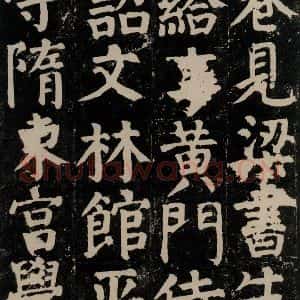 卷見梁書生
給事黃門待
詔文林館平
守隋東宮學
shufawang.cn